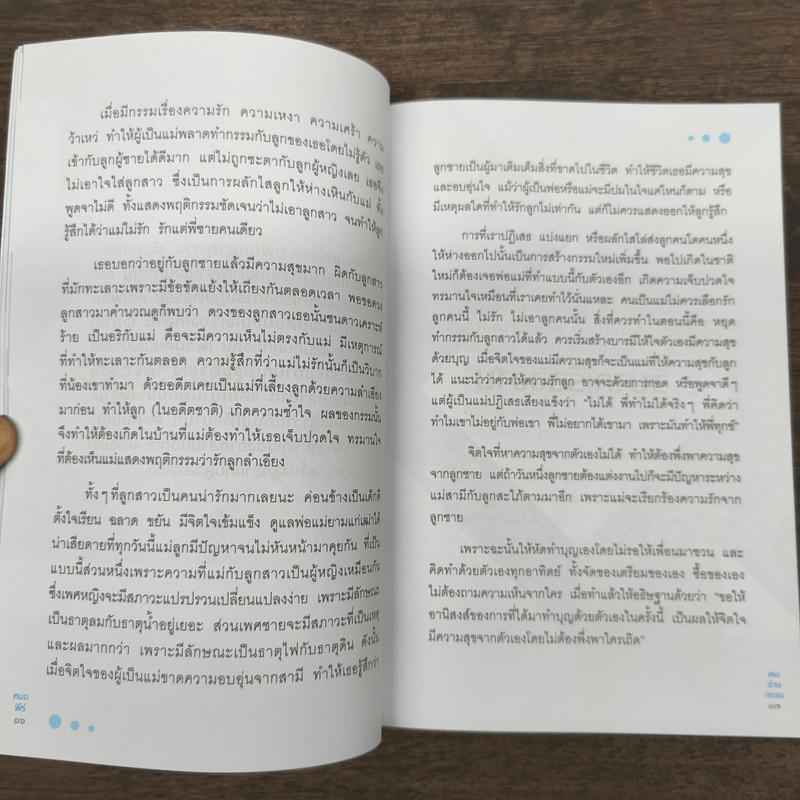 เมื่อมีกรรมเรื่องความรัก ความเหงา ความเศร้า ความ
ว้าเหว่ ทำให้ผู้เป็นแม่พลาดทำกรรมกับลูกของเธอโดยไม่รู้ตัว เธอ
เข้ากับลูกผู้ชายได้ดีมาก แต่ไม่ถูกชะตากับลูกผู้หญิงเลย เธอจึง
ไม่เอาใจใส่ลูกสาว ซึ่งเป็นการผลักไสลูกให้ห่างเหินกับแม่ ทั้ง
พูดจาไม่ดี ทั้งแสดงพฤติกรรมชัดเจนว่าไม่เอาลูกสาว จนทำให้ลูก
รู้สึกได้ว่าแม่ไม่รัก รักแต่พี่ชายคนเดียว
เธอบอกว่าอยู่กับลูกชายแล้วมีความสุขมาก ผิดกับลูกสาว
ที่มักทะเลาะเพราะมีข้อขัดแย้งให้เถียงกันตลอดเวลา พอขอดวง
ลูกสาวมาคำนวณดูก็พบว่า ดวงของลูกสาวเธอนั้นชนดาวเคราะห์
ร้าย เป็นอริกับแม่ คือจะมีความเห็นไม่ตรงกับแม่ มีเหตุการณ์
ที่ทำให้ทะเลาะกันตลอด ความรู้สึกที่ว่าแม่ไม่รักนั้นก็เป็นวิบาก
ที่น้องเขาทำมา ด้วยอดีตเคยเป็นแม่ที่เลี้ยงลูกด้วยความลำเอียง
มาก่อน ทำให้ลูก (ในอดีตชาติ) เกิดความช้ำใจ ผลของกรรมนั้น
จึงทำให้ต้องเกิดในบ้านที่แม่ต้องทำให้เธอเจ็บปวดใจ ทรมานใจ
ที่ต้องเห็นแม่แสดงพฤติกรรมว่ารักลูกลำเอียง
ทั้งๆ ที่ลูกสาวเป็นคนน่ารักมากเลยนะ ค่อนข้างเป็นเด็กดี
ตั้งใจเรียน ฉลาด ขยัน มีจิตใจเข้มแข็ง ดูแลพ่อแม่ยามแก่เฒ่าได้
น่าเสียดายที่ทุกวันนี้แม่ลูกมีปัญหาจนไม่หันหน้ามาคุยกัน ที่เป็น
แบบนี้ส่วนหนึ่งเพราะความที่แม่กับลูกสาวเป็นผู้หญิงเหมือนกัน
ซึ่งเพศหญิงจะมีสภาวะแปรปรวนเปลี่ยนแปลงง่าย เพราะมีลักษณะ
เป็นธาตุลมกับธาตุน้ำอยู่เยอะ ส่วนเพศชายจะมีสภาวะที่เป็นเหตุ
และผลมากกว่า เพราะมีลักษณะเป็นธาตุไฟกับธาตุดิน ดังนั้น
เมื่อจิตใจของผู้เป็นแม่ขาดความอบอุ่นจากสามี ทำให้เธอรู้สึกว่า
หมอ
พีร์
๑๖
ลูกชายเป็นผู้มาเติมเต็มสิ่งที่ขาดไปในชีวิต ทำให้ชีวิตเธอมีความสุข
และอบอุ่นใจ แม้ว่าผู้เป็นพ่อหรือแม่จะมีปมในใจแค่ไหนก็ตาม หรือ
มีเหตุผลใดที่ทำให้รักลูกไม่เท่ากัน แต่ก็ไม่ควรแสดงออกให้ลูกรู้สึก
การที่เราปฏิเสธ แบ่งแยก หรือผลักไสไล่ส่งลูกคนใดคนหนึ่ง
ให้ห่างออกไปนั้นเป็นการสร้างกรรมใหม่เพิ่มขึ้น พอไปเกิดในชาติ
ใหม่ก็ต้องเจอพ่อแม่ที่ทำแบบนี้กับตัวเองอีก เกิดความเจ็บปวดใจ
ทรมานใจเหมือนที่เราเคยทำไว้นั่นแหละ คนเป็นแม่ไม่ควรเลือกรัก
ลูกคนนี้ ไม่รัก ไม่เอาลูกคนนั้น สิ่งที่ควรทำในตอนนี้คือ หยุด
ทำกรรมกับลูกสาวได้แล้ว ควรเริ่มสร้างบารมีให้ใจตัวเองมีความสุข
ด้วยบุญ เมื่อจิตใจของแม่มีความสุขก็จะเป็นแม่ที่ให้ความสุขกับลูก
ได้ แนะนำว่าควรให้ความรักลูก อาจจะด้วยการกอด หรือพูดจาดีๆ
แต่ผู้เป็นแม่ปฏิเสธเสียงแข็งว่า "ไม่ได้ พี่ทำไม่ได้จริงๆ พี่คิดว่า
ทำไมเขาไม่อยู่กับพ่อเขา พี่ไม่อยากได้เขามา เพราะมันทำให้พี่ทุกข์"
จิตใจที่หาความสุขจากตัวเองไม่ได้ ทำให้ต้องพึ่งพาความสุข
จากลูกชาย แต่ถ้าวันหนึ่งลูกชายต้องแต่งงานไปก็จะมีปัญหาระหว่าง
แม่สามีกับลูกสะใภ้ตามมาอีก เพราะแม่จะเรียกร้องความรักจาก
ลูกชาย
เพราะฉะนั้นให้หัดทำบุญเองโดยไม่รอให้เพื่อนมาชวน และ
คิดทำด้วยตัวเองทุกอาทิตย์ ทั้งจัดของเตรียมของเอง ซื้อของเอง
ไม่ต้องถามความเห็นจากใคร เมื่อทำแล้วให้อธิษฐานด้วยว่า "ขอให้
อานิสงส์ของการที่ได้มาทำบุญด้วยตัวเองในครั้งนี้ เป็นผลให้จิตใจ
มีความสุขจากตัวเองโดยไม่ต้องพึ่งพาใครเถิด"
คน
อ่าน
กรรม
๑๗